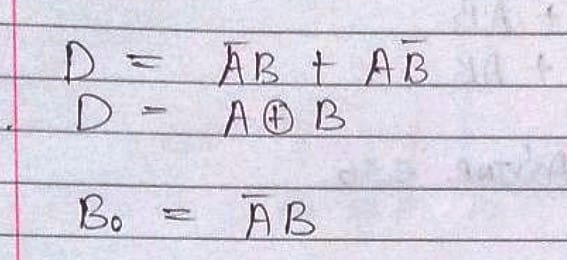 D = A̅B + AB̅
D = A ⊕ B
B₀ = A̅B